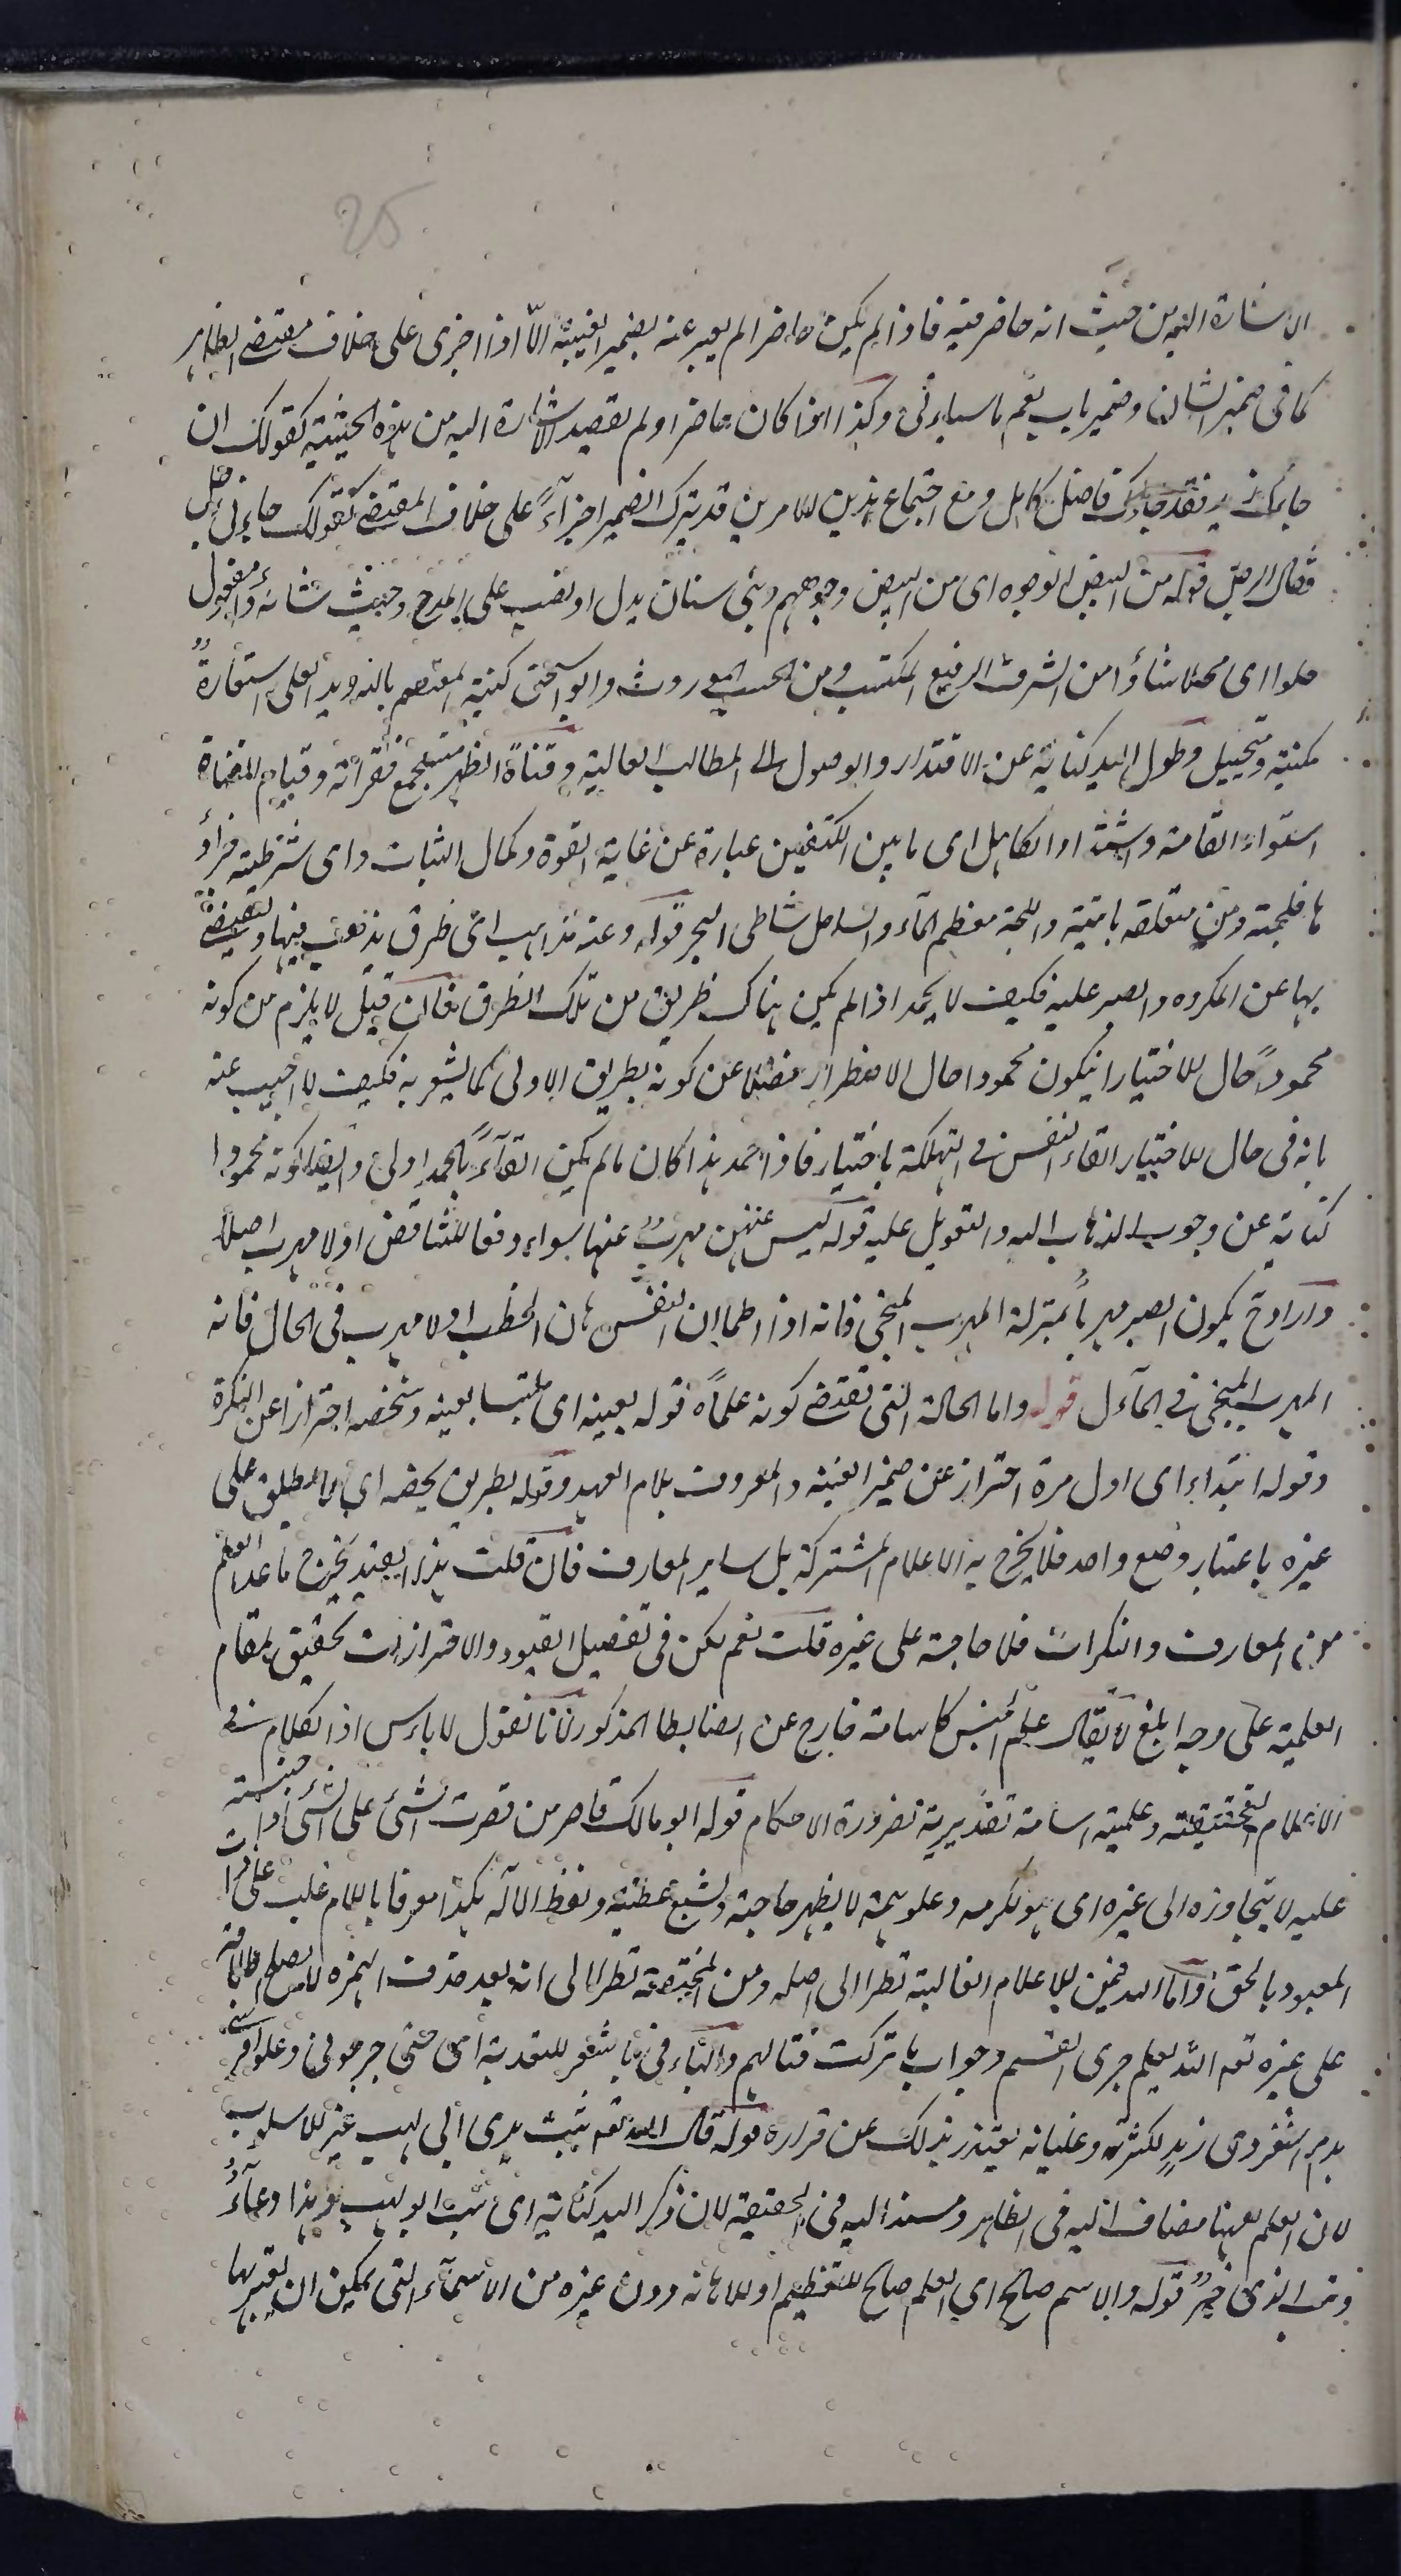 25
الاشارة اليه من حيث انه حاضر فيه فاذا لم يكن حاضرا لم يعبر عنه بضمير الغيبة الّا اذا اجرى على خلاف مقتضى الظاهر
كما فى ضمير الشان وضمير باب نعم ما سياءتى وكذا اذا كان حاضرا ولم يقصد الاشارة اليه من هذه الحيثية كقولك ان
جاءك زيد فقد جاءك فاضل كامل ومع اجتماع هذين الامرين قد يترك الضمير اجرآءً على خلاف المقتضى كقولك جاءنى رجل
فقال الرجل قوله من البيض الوجوه اى من البيض وجوههم وبنى سنان بدل او نصب على المدح وحيث شاءوا مفعول
حلوا اى محلا شاؤا من الشرف الرفيع المكتسب ومن الحسب الموروث وابو اسحق كنية المعتصم بالله ويد العلى استعارةٌ
مكنية وتخييل وطول اليد كناية عن الاقتدار والوصول الى المطالب العالية وقناة الظهر مستجمع فقراته وقيام القناة
استواء القامة واشتداد الكاهل اى ما بين الكتفين عبارة عن غاية القوة وكمال الثبات واى شرطية فزاد
ها فلجته ومن متعلقه باتيته واللجة معظم الماء والساحل شاطى البحر قوله وعنه مذاهب اى طرق يذهب فيها ويتفصى
بها عن المكروه والصبر عليه فكيف لا يحمد اذا لم يكن هناك طريق من تلك الطرق فان قيل لا يلزم من كونه
محموداً حال الاختيار ان يكون محمودا حال الاضطرار فضلا عن كونه بطريق الاولى كما يشعر به فكيف لا اجيب عنه
بانه فى حال الاختيار القاء النفس فى التهلكة باختيار فاذا حمد هذا كان ما لم يكن القآءً بالحمد اولى وايضا كونه محمودا
كناية عن وجوب الذهاب اليه والتعويل عليه قوله ليس عنهن مهربٌ عنها سواه دفعا للتناقض او لا مهرب اصلا
واراد ح يكون الصبر مهرباً بمنزلة المهرب المنجى فانه اذا اطماءن النفس هان الخطب او لا مهرب فى الحال فانه
المهرب المنجى فى المآل قوله واما الحالة التى تقتضى كونه علماً قوله بعينه اى ملتبسا بعينه وشخصه احترازا عن النكرة
وقوله ابتداء اى اول مرة احتراز عن ضمير الغيبة والمعروف بلام العهد وقوله بطريق يخصه اى لا يطلق على
غيره باعتبار وضع واحد فلا يخرج به الاعلام المشتركة بل ساير المعارف فان قلت هذا القيد يخرج ما عدا العلم
من المعارف والنكرات فلا حاجة على غيره قلت نعم لكن فى تفصيل القيود والاحترازات تحقيق لمقام
العلمية على وجه ابلغ لا يقال علم الجنس كاسامة خارج عن الضابط المذكور لانا نقول لا باءس اذ الكلام فى
الاعلام الحقيقية وعلمية اسامة تقديرية لضرورة الاحكام قوله ابو مالك قاصر من قصرت الشئ على الشئ اذا حبسته
عليه لا يتجاوزه الى غيره اى هو لكرمه وعلو همته لا يظهر حاجته ويشيع عطيته ولفظ الاله هكذا معرفا باللام غلب على ذات
المعبود بالحق واما الله فمن الاعلام الغالبة نظرا الى اصله ومن المختصة نظرا الى انه بعد حذف الهمزة لا يصلح اطلاقه
على غيره قوله الله يعلم جرى القسم وجواب ما تركت قتالهم والباء فى باشقر للتعدية اى حتى جرحونى وعلوا فرسى
بدم اشقر ذى زبد لكثرته وغليانه يعتذر بذلك عن فراره قوله قال الله تعالى تبت يدى ابى لهب غير الاسلوب
لان العلم ههنا مضاف اليه فى الظاهر ومسند اليه فى الحقيقة لان ذكر اليد كناية اى تبت ابو لهب وهذا دعاءٌ
الذى خبرٌ قوله والاسم صالح اى العلم صالح للتعظيم او للاهانة دون غيره من الاسماء التى يمكن ان يعبر بها